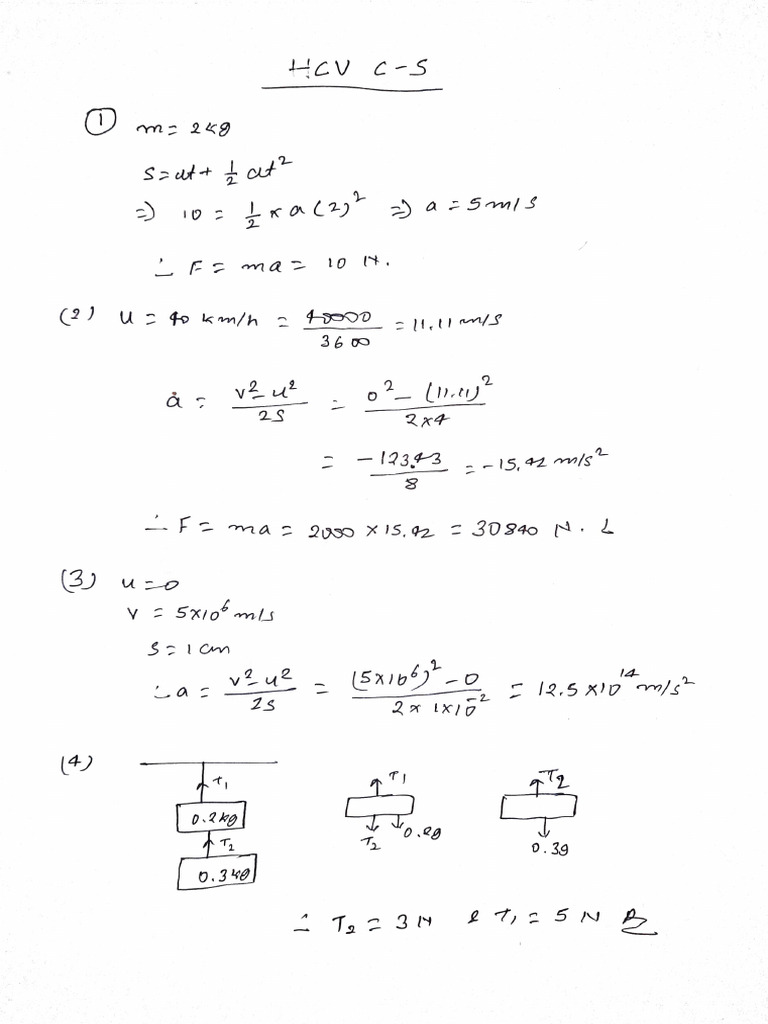 HCV C-5
(1) m = 2 kg
S = ut + 1/2 at²
⇒ 10 = 1/2 × a(2)² ⇒ a = 5 m/s
∴ F = ma = 10 N.
(2) u = 40 km/h = 40000/3600 = 11.11 m/s
a = (v² - u²)/2S = (0² - (11.11)²)/(2×4)
= -123.43/8 = -15.42 m/s²
∴ F = ma = 2000 × 15.42 = 30840 N.
(3) u = 0
v = 5×10⁶ m/s
S = 1 cm
∴ a = (v² - u²)/2S = ((5×10⁶)² - 0)/(2 × 1×10⁻²) = 12.5 × 10¹⁴ m/s²
(4)
T₁
0.2kg
T₂
0.3kg
T₁
T₂ 0.2g
T₂
0.3g
∴ T₂ = 3 N & T₁ = 5 N